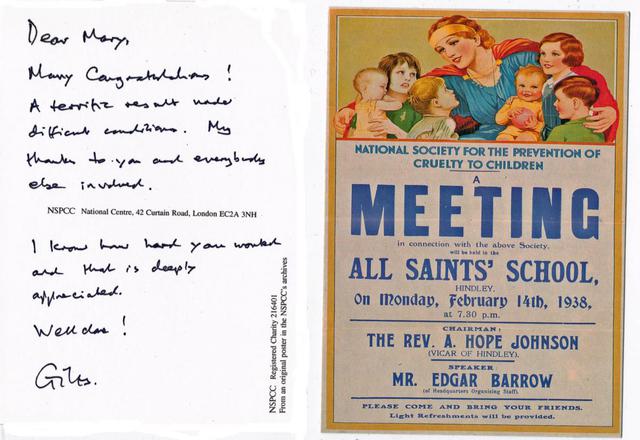 Dear Mary,
Many Congratulations !
A terrific result under
difficult conditions. My
thanks to you and everybody
else involved.
NSPCC National Centre, 42 Curtain Road, London EC2A 3NH
I know how hard you worked
and that is deeply
appreciated.
Well done !
Giles.
NSPCC Registered Charity 216401
From an original poster in the NSPCC's archives
NATIONAL SOCIETY FOR THE PREVENTION OF
CRUELTY TO CHILDREN
A
MEETING
in connection with the above Society,
will be held in the
ALL SAINTS' SCHOOL,
HINDLEY.
On Monday, February 14th, 1938,
at 7.30 p.m.
CHAIRMAN:
THE REV. A. HOPE JOHNSON
(VICAR OF HINDLEY).
SPEAKER
MR. EDGAR BARROW
(of Headquarters Organising Staff).
PLEASE COME AND BRING YOUR FRIENDS.
Light Refreshments will be provided.